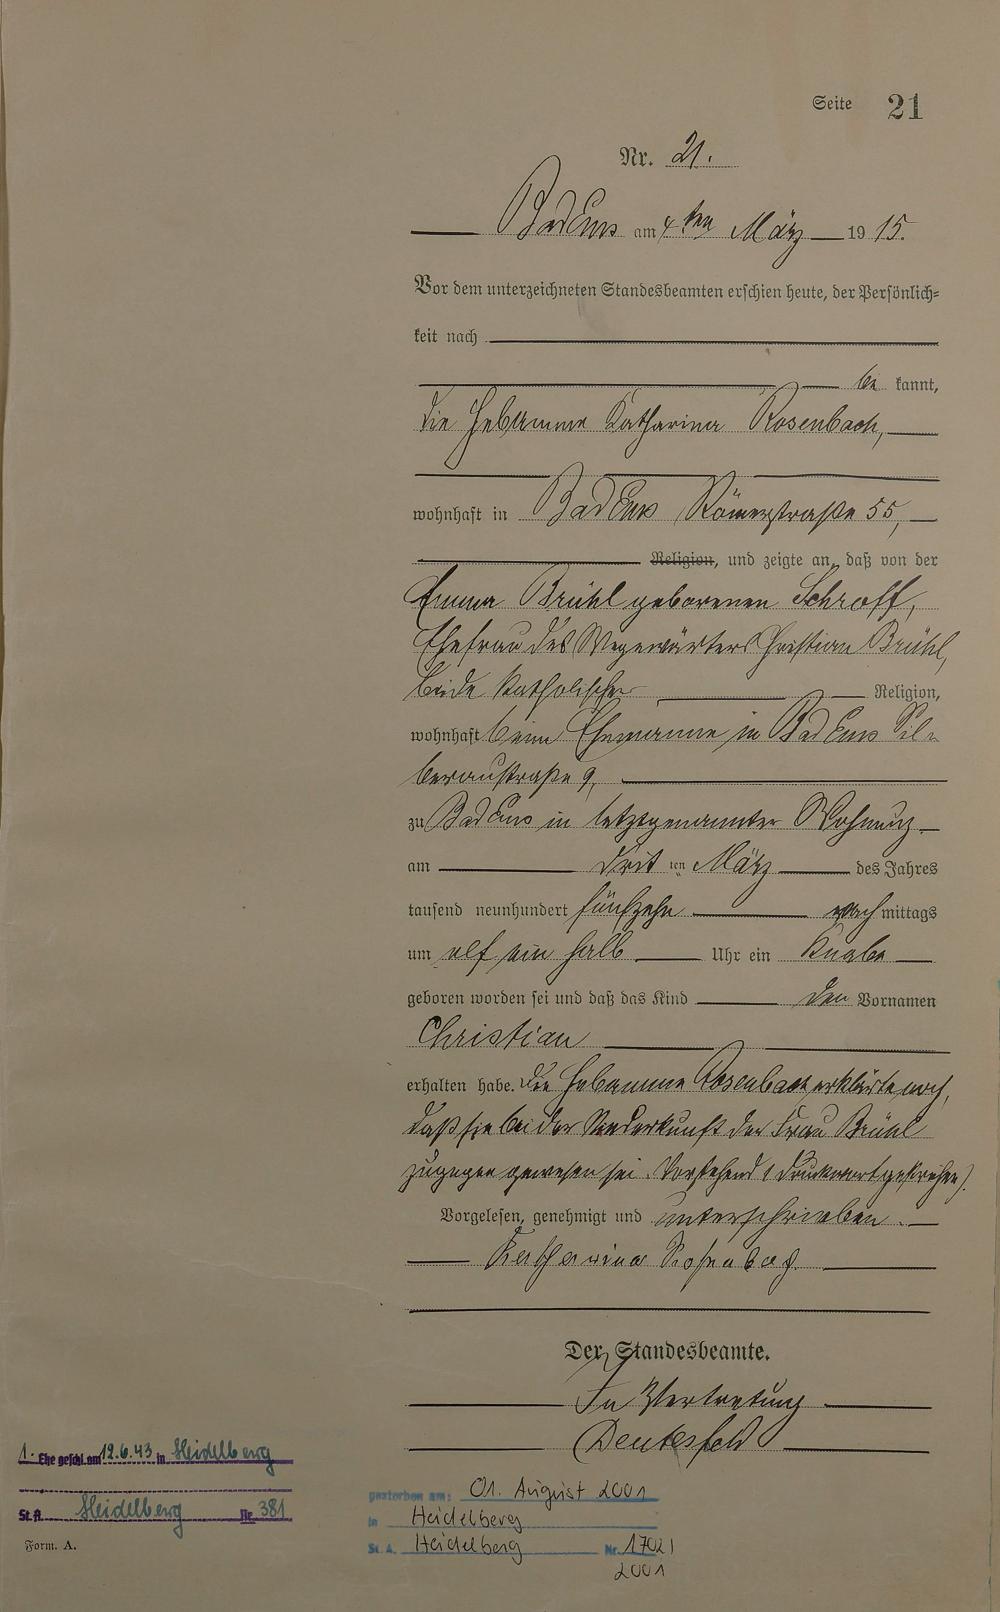 Seite 21
Nr. 21.
Bad Ems am 4ten März 19 15.
Vor dem unterzeichneten Standesbeamten erschien heute, der Persönlich=
keit nach
be kannt,
die Hebamme Katharina Rosenbach,
wohnhaft in Bad Ems Römerstraße 55,
Religion, und zeigte an, daß von der
Emma Brühl geborenen Schroff,
Ehefrau des Wegewärters Christian Brühl,
beide katholischer Religion,
wohnhaft beim Ehemanne in Bad Ems Sil-
beraustraße 9,
zu Bad Ems in letztgenannter Wohnung
am dritten März des Jahres
tausend neunhundert fünfzehn nachmittags
um elf ein halb Uhr ein Knabe
geboren worden sei und daß das Kind den Vornamen
Christian
erhalten habe. Die Hebamme Rosenbach erklärte noch,
daß sie bei der Niederkunft der Frau Brühl
zugegen gewesen sei. (Vorstehend 1 Druckwort gestrichen).
Vorgelesen, genehmigt und unterschrieben.
Katharina Rosenbach.
Der Standesbeamte.
In Vertretung
Deutesfeld
1. Ehe geschl. am 12.6.43 in Heidelberg
St. A. Heidelberg Nr. 381
Form. A.
gestorben am: 01. August 2001
in Heidelberg
St. A. Heidelberg Nr. 1702/
2001